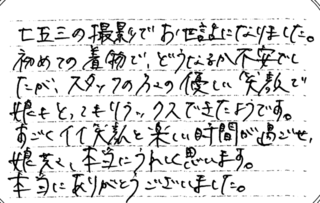 七五三の撮影でお世話になりました。
初めての着物で、どうなるか不安でし
たが、スタッフの方々の優しい笑顔で
娘もとってもリラックスできたようです。
すごくイイ笑顔と楽しい時間が過ごせ、
娘共々、本当にうれしく思います。
本当にありがとうございました。